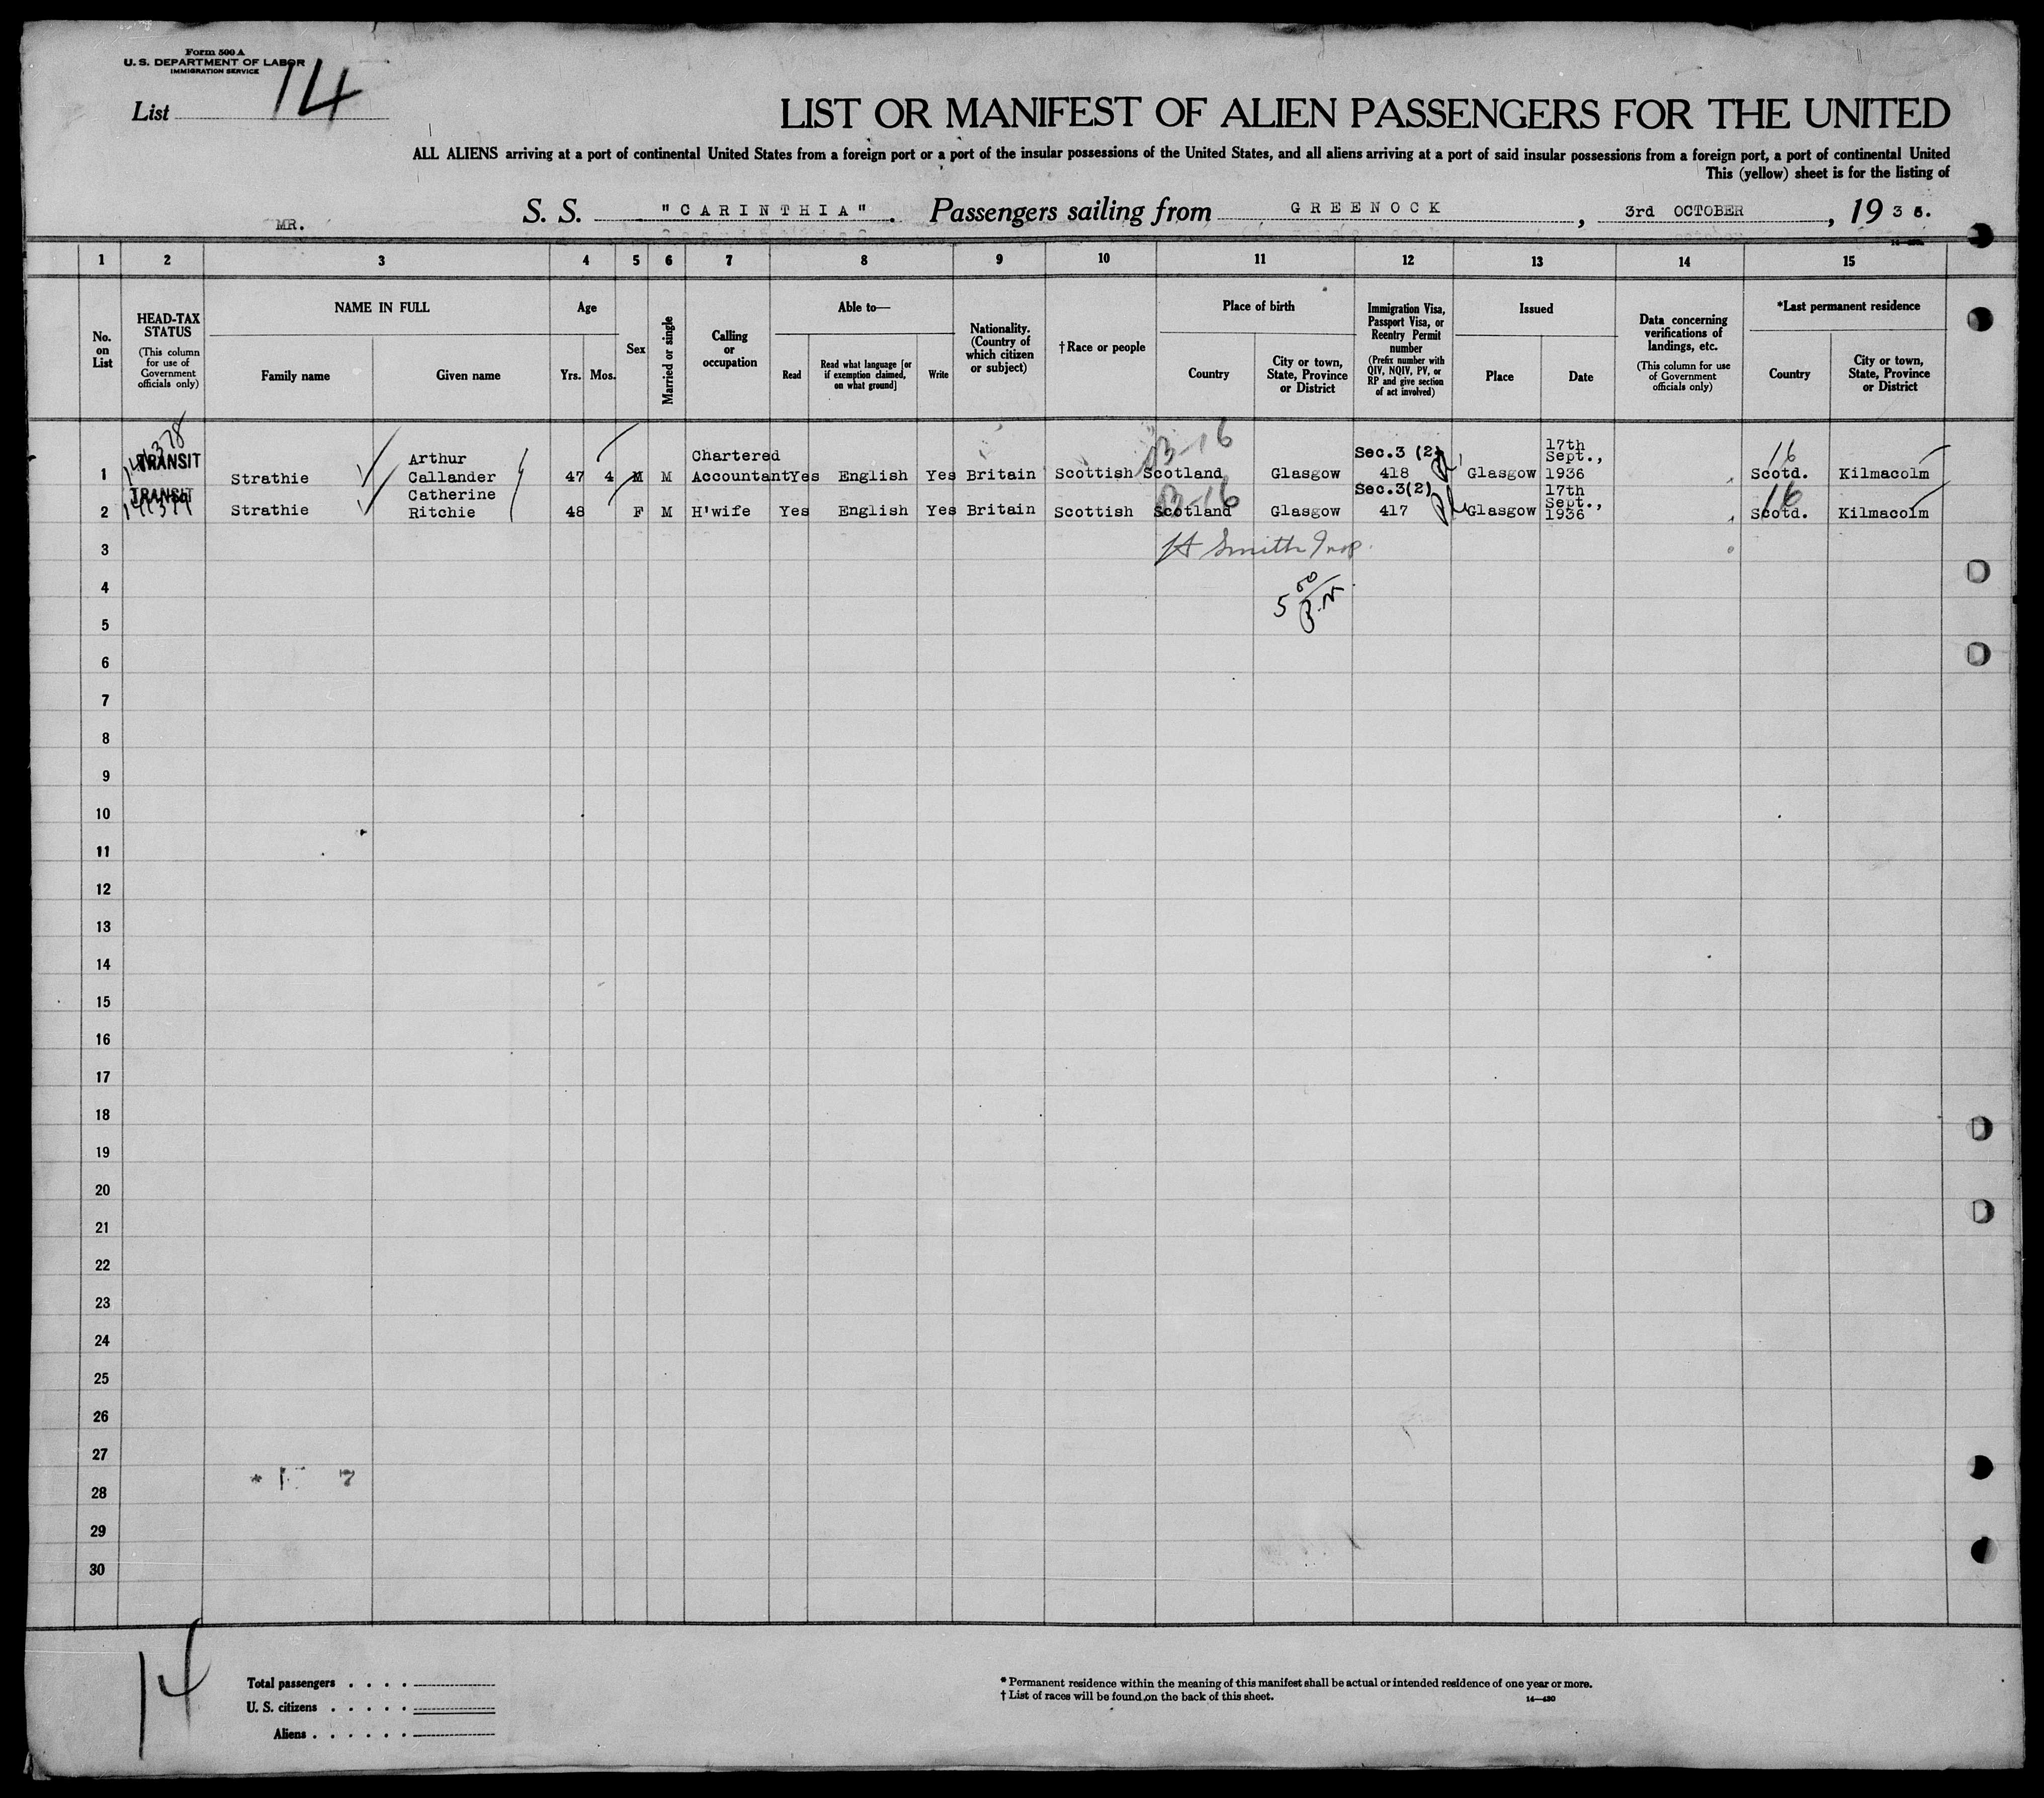 Form 500 A
U. S. DEPARTMENT OF LABOR
IMMIGRATION SERVICE
List 14
LIST OR MANIFEST OF ALIEN PASSENGERS FOR THE UNITED
ALL ALIENS arriving at a port of continental United States from a foreign port or a port of the insular possessions of the United States, and all aliens arriving at a port of said insular possessions from a foreign port, a port of continental United
This (yellow) sheet is for the listing of
MR.
S. S. "CARINTHIA". Passengers sailing from GREENOCK, 3rd OCTOBER, 1936.
1 2 3 4 5 6 7 8 9 10 11 12 13 14 15
No. on List
HEAD-TAX STATUS
(This column for use of Government officials only)
NAME IN FULL
Family name
Given name
Age
Yrs. Mos.
Sex
Married or single
Calling or occupation
Able to—
Read
Read what language [or if exemption claimed, on what ground]
Write
Nationality. (Country of which citizen or subject)
†Race or people
Place of birth
Country
City or town, State, Province or District
Immigration Visa, Passport Visa, or Reentry Permit number
(Prefix number with QIV, NQIV, PV, or RP and give section of act involved)
Issued
Place
Date
Data concerning verifications of landings, etc.
(This column for use of Government officials only)
*Last permanent residence
Country
City or town, State, Province or District
1 TRANSIT Strathie Arthur Callander 47 4 M M Chartered Accountant Yes English Yes Britain Scottish Scotland Glasgow Sec.3 (2) 418 Glasgow 17th Sept., 1936 16 Scotd. Kilmacolm
2 TRANSIT Strathie Catherine Ritchie 48 F M H'wife Yes English Yes Britain Scottish Scotland Glasgow Sec.3(2) 417 Glasgow 17th Sept., 1936 16 Scotd. Kilmacolm
3
4
5
6
7
8
9
10
11
12
13
14
15
16
17
18
19
20
21
22
23
24
25
26
27
28
29
30
14
Total passengers
U. S. citizens
Aliens
* Permanent residence within the meaning of this manifest shall be actual or intended residence of one year or more.
† List of races will be found on the back of this sheet.
14—430